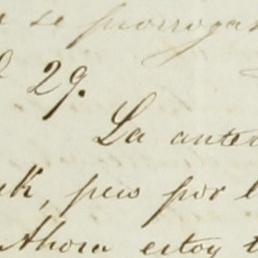 se prorroga
29.
La ante
k, pero por l
Ahora estoy t